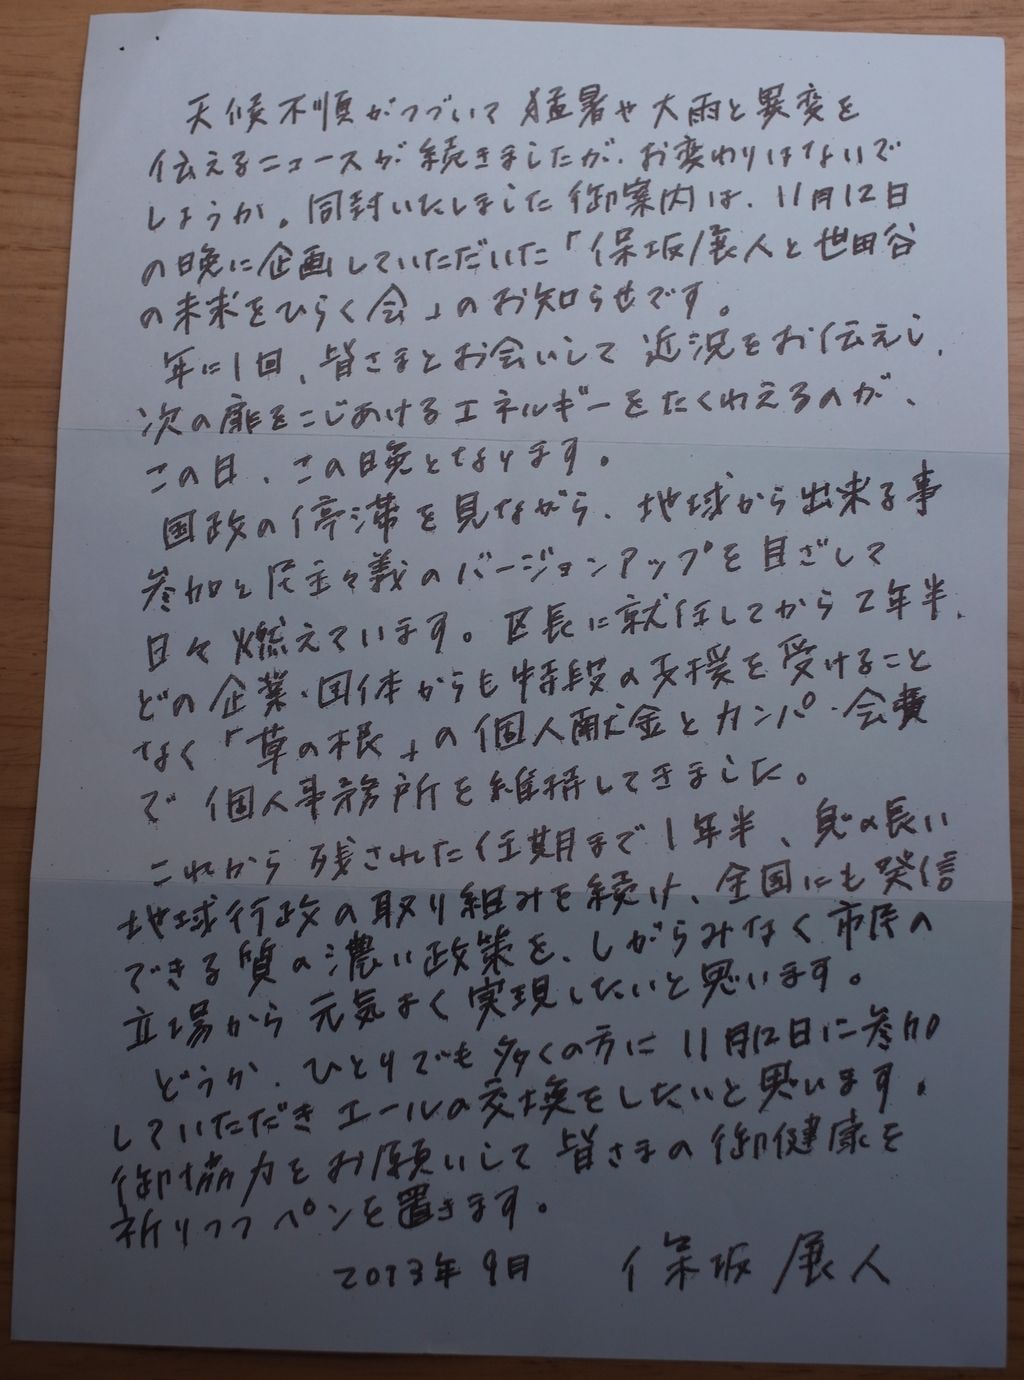 天候不順がつづいて猛暑や大雨と異変を
伝えるニュースが続きましたが、お変わりはないで
しょうか。同封いたしました御案内は、11月12日
の晩に企画していただいた「保坂展人と世田谷
の未来をひらく会」のお知らせです。
年に1回、皆さまとお会いして近況をお伝えし、
次の扉をこじあけるエネルギーをたくわえるのが、
この日、この晩となります。
国政の停滞を見ながら、地域から出来る事
参加と民主々義のバージョンアップを目ざして
日々燃えています。区長に就任してから2年半、
どの企業・団体からも特段の支援を受けること
なく「草の根」の個人献金とカンパ・会費
で個人事務所を維持してきました。
これから残された任期まで1年半、息の長い
地域行政の取り組みを続け、全国にも発信
できる質の濃い政策を、しがらみなく市民の
立場から元気よく実現したいと思います。
どうか、ひとりでも多くの方に11月12日に参加
していただきエールの交換をしたいと思います。
御協力をお願いして皆さまの御健康を
祈りつつペンを置きます。
2013年9月 保坂展人